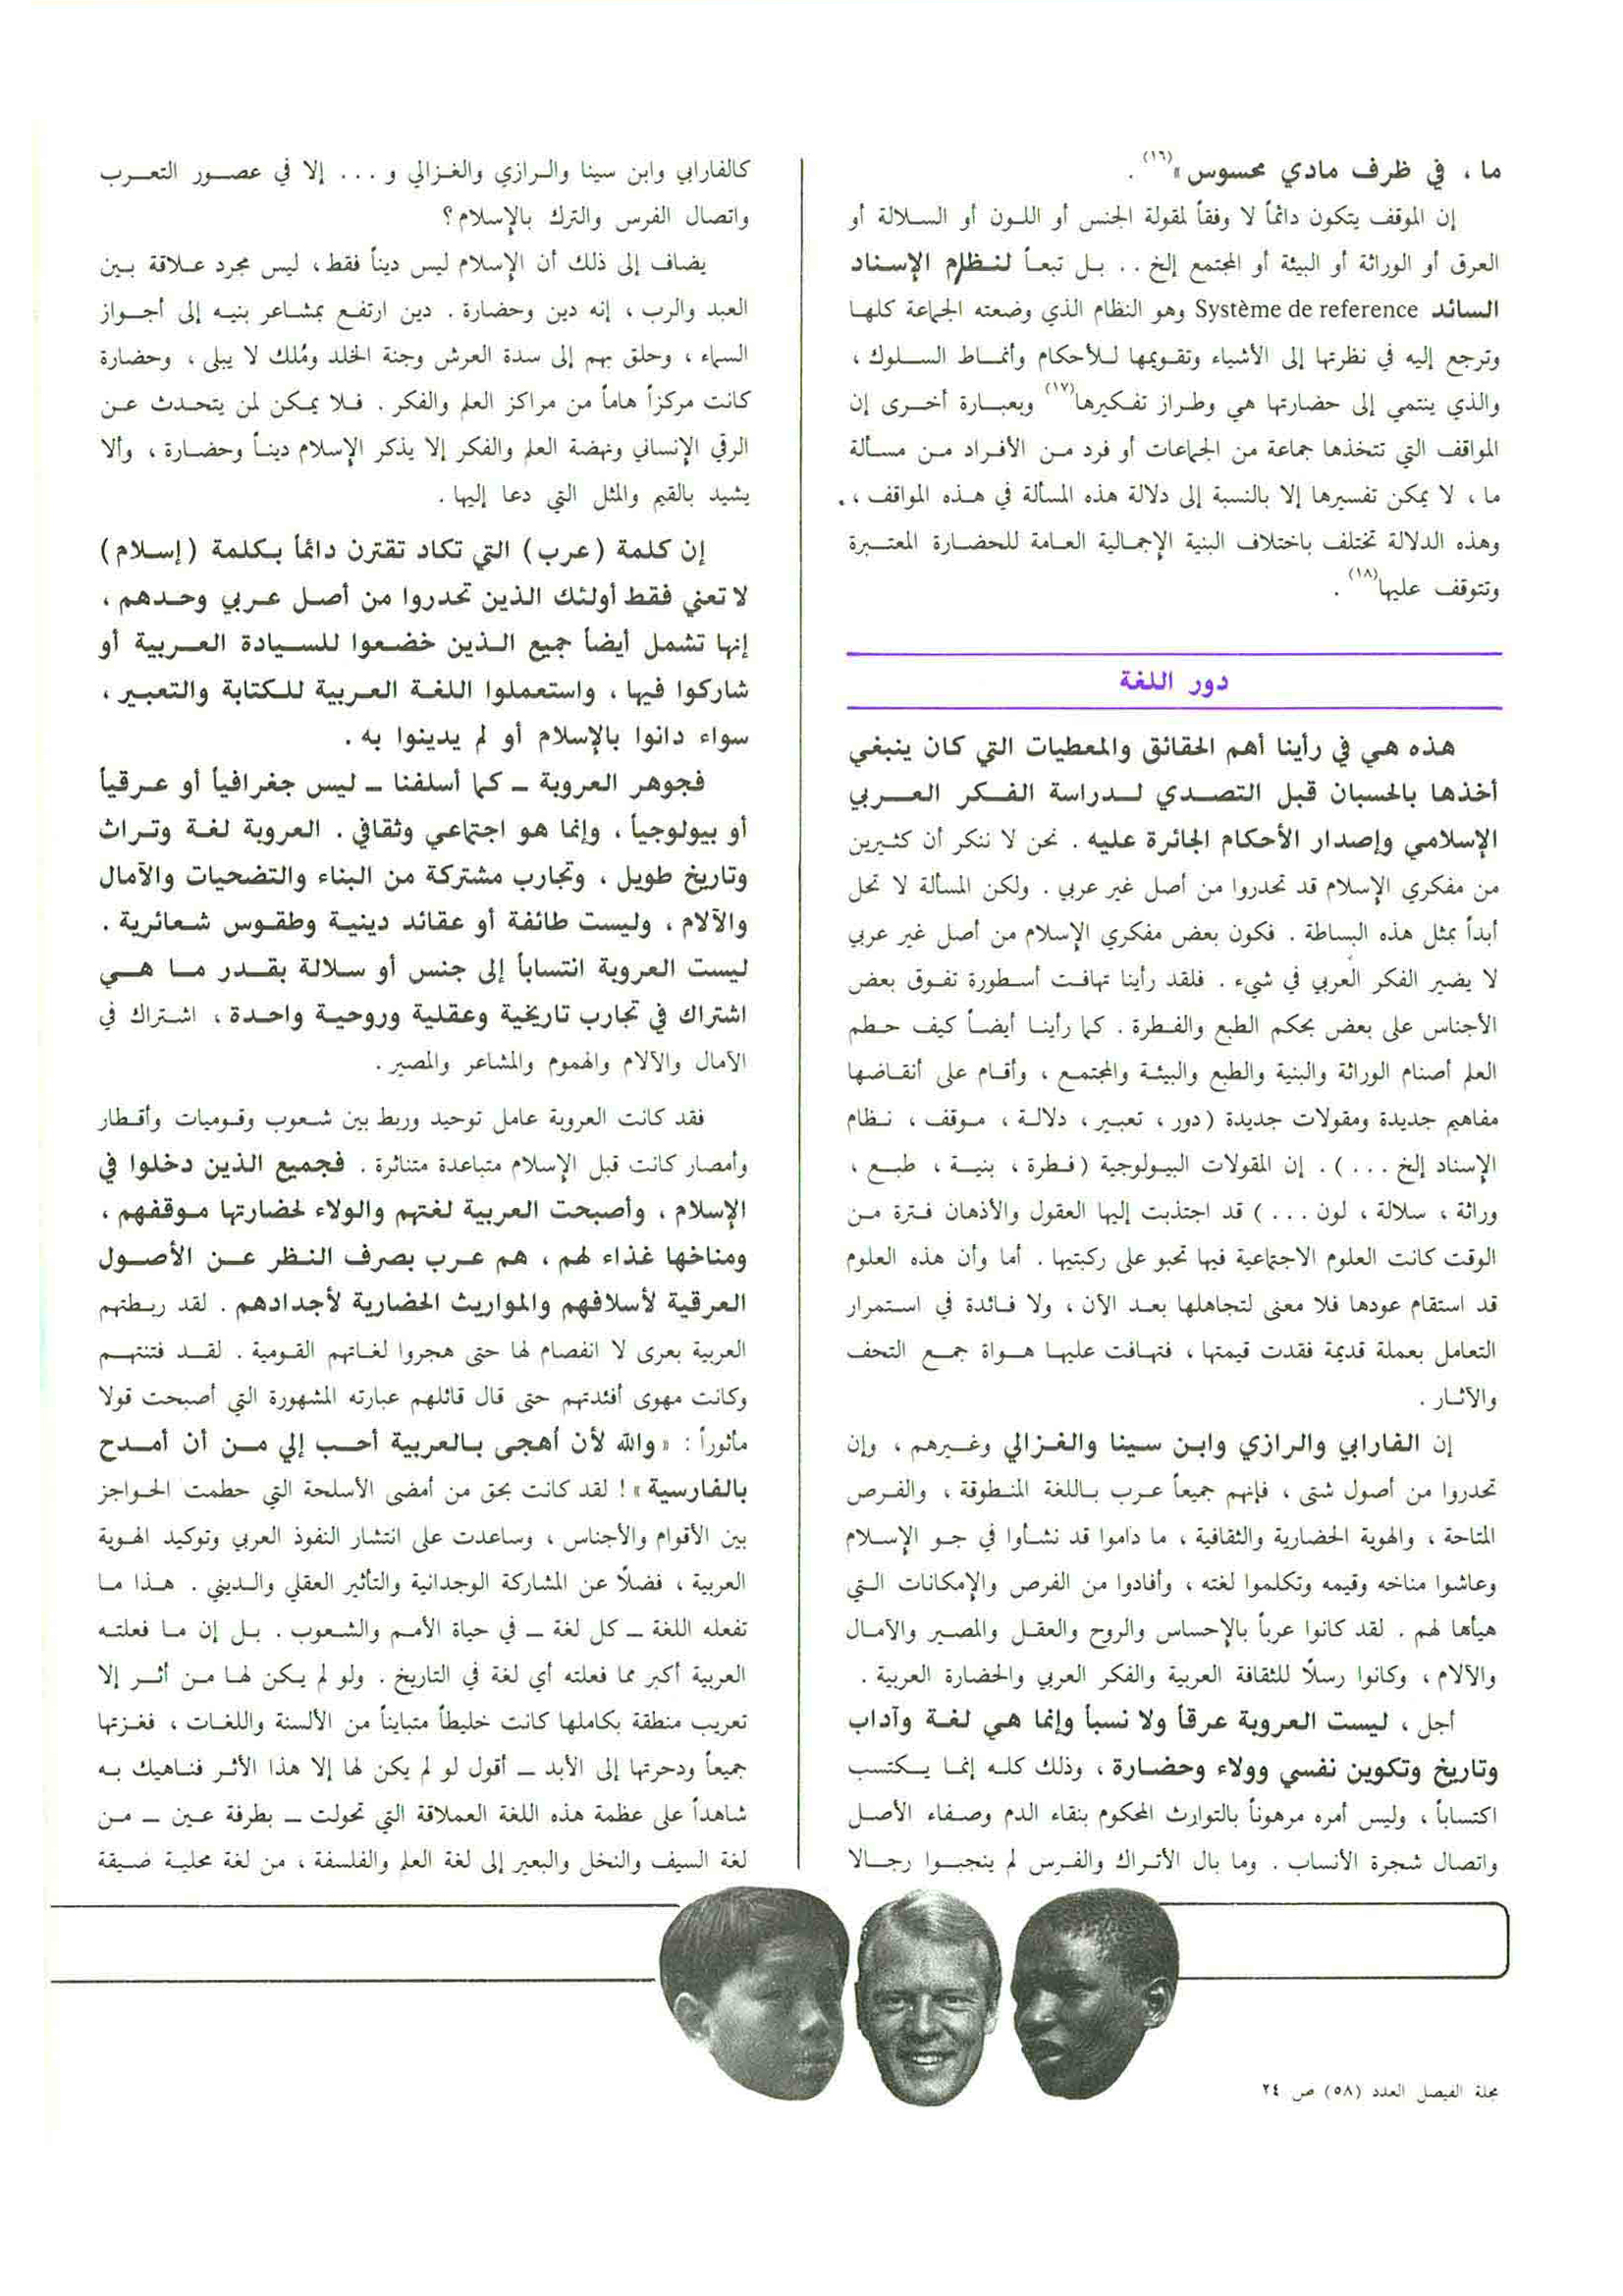 ما ، في ظرف مادي محسوس »(١٦) .
إن الموقف يتكون دائماً لا وفقاً لمقولة الجنس أو اللون أو السلالة أو
العرق أو الوراثة أو البيئة أو المجتمع إلخ .. بل تبعاً لنظام الإسناد
السائد Système de reference وهو النظام الذي وضعته الجماعة كلها
وترجع إليه في نظرتها إلى الأشياء وتقويمها للأحكام وأنماط السلوك ،
والذي ينتمي إلى حضارتها هي وطراز تفكيرها(١٧) وبعبارة أخرى إن
المواقف التي تتخذها جماعة من الجماعات أو فرد من الأفراد من مسألة
ما ، لا يمكن تفسيرها إلا بالنسبة إلى دلالة هذه المسألة في هذه المواقف ،
وهذه الدلالة تختلف باختلاف البنية الإجمالية العامة للحضارة المعتبرة
وتتوقف عليها(١٨) .
دور اللغة
هذه هي في رأينا أهم الحقائق والمعطيات التي كان ينبغي
أخذها بالحسبان قبل التصدي لدراسة الفكر العربي
الإسلامي وإصدار الأحكام الجائرة عليه . نحن لا ننكر أن كثيرين
من مفكري الإسلام قد تحدروا من أصل غير عربي . ولكن المسألة لا تحل
أبداً بمثل هذه البساطة . فكون بعض مفكري الإسلام من أصل غير عربي
لا يضير الفكر العربي في شيء . فلقد رأينا تهافت أسطورة تفوق بعض
الأجناس على بعض بحكم الطبع والفطرة . كما رأينا أيضاً كيف حطم
العلم أصنام الوراثة والبنية والطبع والبيئة والمجتمع ، وأقام على أنقاضها
مفاهيم جديدة ومقولات جديدة (دور ، تعبير ، دلالة ، موقف ، نظام
الإسناد إلخ ... ) . إن المقولات البيولوجية (فطرة ، بنية ، طبع ،
وراثة ، سلالة ، لون ... ) قد اجتذبت إليها العقول والأذهان فترة من
الوقت كانت العلوم الاجتماعية فيها تحبو على ركبتيها . أما وأن هذه العلوم
قد استقام عودها فلا معنى لتجاهلها بعد الآن ، ولا فائدة في استمرار
التعامل بعملة قديمة فقدت قيمتها ، فتهافت عليها هواة جمع التحف
والآثار .
إن الفارابي والرازي وابن سينا والغزالي وغيرهم ، وإن
تحدروا من أصول شتى ، فإنهم جميعاً عرب باللغة المنطوقة ، والفرص
المتاحة ، والهوية الحضارية والثقافية ، ما داموا قد نشأوا في جو الإسلام
وعاشوا مناخه وقيمه وتكلموا لغته ، وأفادوا من الفرص والإمكانات التي
هيأها لهم . لقد كانوا عرباً بالإحساس والروح والعقل والمصير والآمال
والآلام ، وكانوا رسلًا للثقافة العربية والفكر العربي والحضارة العربية .
أجل ، ليست العروبة عرقاً ولا نسباً وإنما هي لغة وآداب
وتاريخ وتكوين نفسي وولاء وحضارة ، وذلك كله إنما يكتسب
اكتساباً ، وليس أمره مرهوناً بالتوارث المحكوم بنقاء الدم وصفاء الأصل
واتصال شجرة الأنساب . وما بال الأتراك والفرس لم ينجبوا رجالا
كالفارابي وابن سينا والرازي والغزالي و ... إلا في عصور التعرب
واتصال الفرس والترك بالإسلام ؟
يضاف إلى ذلك أن الإسلام ليس ديناً فقط ، ليس مجرد علاقة بين
العبد والرب ، إنه دين وحضارة . دين ارتفع بمشاعر بنيه إلى أجواز
السماء ، وحلق بهم إلى سدة العرش وجنة الخلد ومُلك لا يبلى ، وحضارة
كانت مركزاً هاماً من مراكز العلم والفكر . فلا يمكن لمن يتحدث عن
الرقي الإنساني ونهضة العلم والفكر إلا يذكر الإسلام ديناً وحضارة ، وألا
يشيد بالقيم والمثل التي دعا إليها .
إن كلمة (عرب) التي تكاد تقترن دائماً بكلمة (إسلام)
لا تعني فقط أولئك الذين تحدروا من أصل عربي وحدهم ،
إنها تشمل أيضاً جميع الذين خضعوا للسيادة العربية أو
شاركوا فيها ، واستعملوا اللغة العربية للكتابة والتعبير ،
سواء دانوا بالإسلام أو لم يدينوا به .
فجوهر العروبة – كما أسلفنا – ليس جغرافياً أو عرقياً
أو بيولوجياً ، وإنما هو اجتماعي وثقافي . العروبة لغة وتراث
وتاريخ طويل ، وتجارب مشتركة من البناء والتضحيات والآمال
والآلام ، وليست طائفة أو عقائد دينية وطقوس شعائرية .
ليست العروبة انتساباً إلى جنس أو سلالة بقدر ما هي
اشتراك في تجارب تاريخية وعقلية وروحية واحدة ، اشتراك في
الآمال والآلام والهموم والمشاعر والمصير .
فقد كانت العروبة عامل توحيد وربط بين شعوب وقوميات وأقطار
وأمصار كانت قبل الإسلام متباعدة متناثرة . فجميع الذين دخلوا في
الإسلام ، وأصبحت العربية لغتهم والولاء لحضارتها موقفهم ،
ومناخها غذاء لهم ، هم عرب بصرف النظر عن الأصول
العرقية لأسلافهم والمواريث الحضارية لأجدادهم . لقد ربطتهم
العربية بعرى لا انفصام لها حتى هجروا لغاتهم القومية . لقد فتنتهم
وكانت مهوى أفئدتهم حتى قال قائلهم عبارته المشهورة التي أصبحت قولا
مأثوراً : « والله لأن أهجى بالعربية أحب إلي من أن أمدح
بالفارسية » ! لقد كانت بحق من أمضى الأسلحة التي حطمت الحواجز
بين الأقوام والأجناس ، وساعدت على انتشار النفوذ العربي وتوكيد الهوية
العربية ، فضلًا عن المشاركة الوجدانية والتأثير العقلي والديني . هذا ما
تفعله اللغة – كل لغة – في حياة الأمم والشعوب . بل إن ما فعلته
العربية أكبر مما فعلته أي لغة في التاريخ . ولو لم يكن لها من أثر إلا
تعريب منطقة بكاملها كانت خليطاً متبايناً من الألسنة واللغات ، فغزتها
جميعاً ودحرتها إلى الأبد – أقول لو لم يكن لها إلا هذا الأثر فناهيك به
شاهداً على عظمة هذه اللغة العملاقة التي تحولت – بطرفة عين – من
لغة السيف والنخل والبعير إلى لغة العلم والفلسفة ، من لغة محلية ضيقة
مجلة الفيصل العدد (٥٨) ص ٢٤